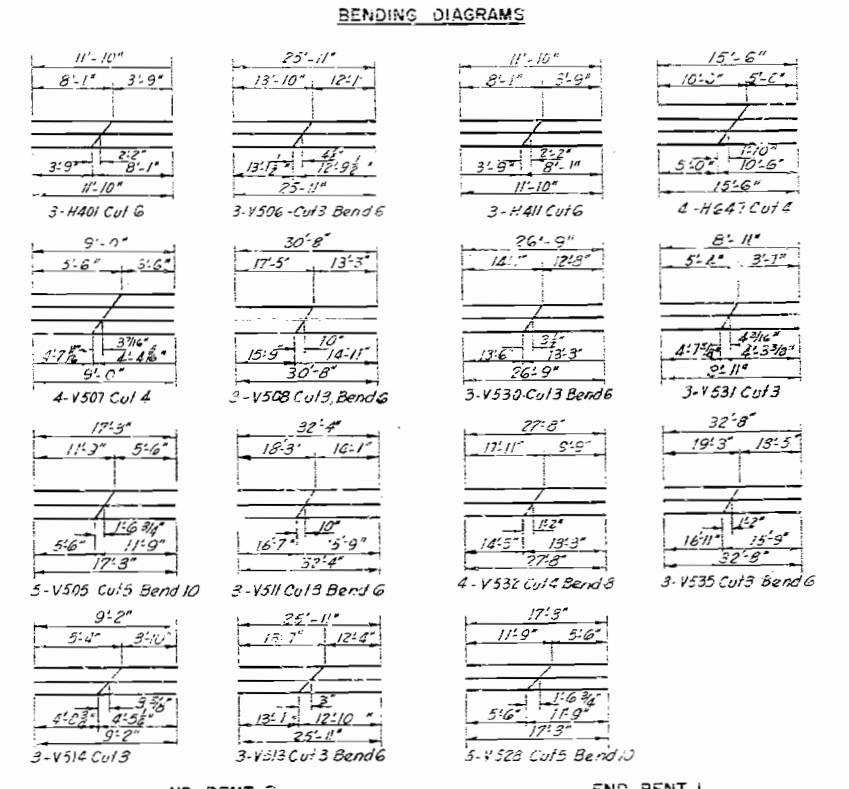 BENDING DIAGRAMS
11'-10"
8'-1" 3'-9"
2'-2"
3'-9" 8'-1"
11'-10"
3-H401 Cut 6
25'-11"
13'-10" 12'-1"
4½"
13'-1½" 12'-9½"
25'-11"
3-V506-Cut 3 Bend 6
11'-10"
8'-1" 3'-9"
2'-2"
3'-9" 8'-1"
11'-10"
3-H411 Cut 6
15'-6"
1'-10"
5'-0" 10'-6"
15'-6"
4-H647 Cut 4
9'-0"
5'-6" 3'-6"
3 7/16"
9'-0"
4-V507 Cut 4
30'-8"
17'-5" 13'-3"
10"
15'-9" 14'-11"
30'-8"
3-V508 Cut 3, Bend 6
26'-9"
12'-8"
3½"
13'-6" 13'-3"
26'-9"
3-V530-Cut 3 Bend 6
8'-11"
5'-4" 3'-7"
4 3/16"
4'-3 3/8"
3-V531 Cut 3
17'-3"
11'-9" 5'-6"
1'-6 3/4"
5'-6" 11'-9"
17'-3"
5-V505 Cut 5 Bend 10
32'-4"
18'-3" 14'-1"
10"
16'-7" 15'-9"
32'-4"
3-V511 Cut 3 Bend 6
27'-8"
17'-11" 9'-9"
1'-2"
14'-5" 13'-3"
27'-8"
4-V532 Cut 4 Bend 8
32'-8"
19'-3" 13'-5"
1'-2"
16'-11" 15'-9"
32'-8"
3-V535 Cut 3 Bend 6
9'-2"
5'-4" 3'-10"
9'-2"
3-V514 Cut 3
25'-11"
13'-7" 12'-4"
3"
13'-1" 12'-10"
25'-11"
3-V513 Cut 3 Bend 6
17'-3"
11'-9" 5'-6"
1'-6 3/4"
5'-6" 11'-9"
17'-3"
5-V528 Cut 5 Bend 10
END BENT 1